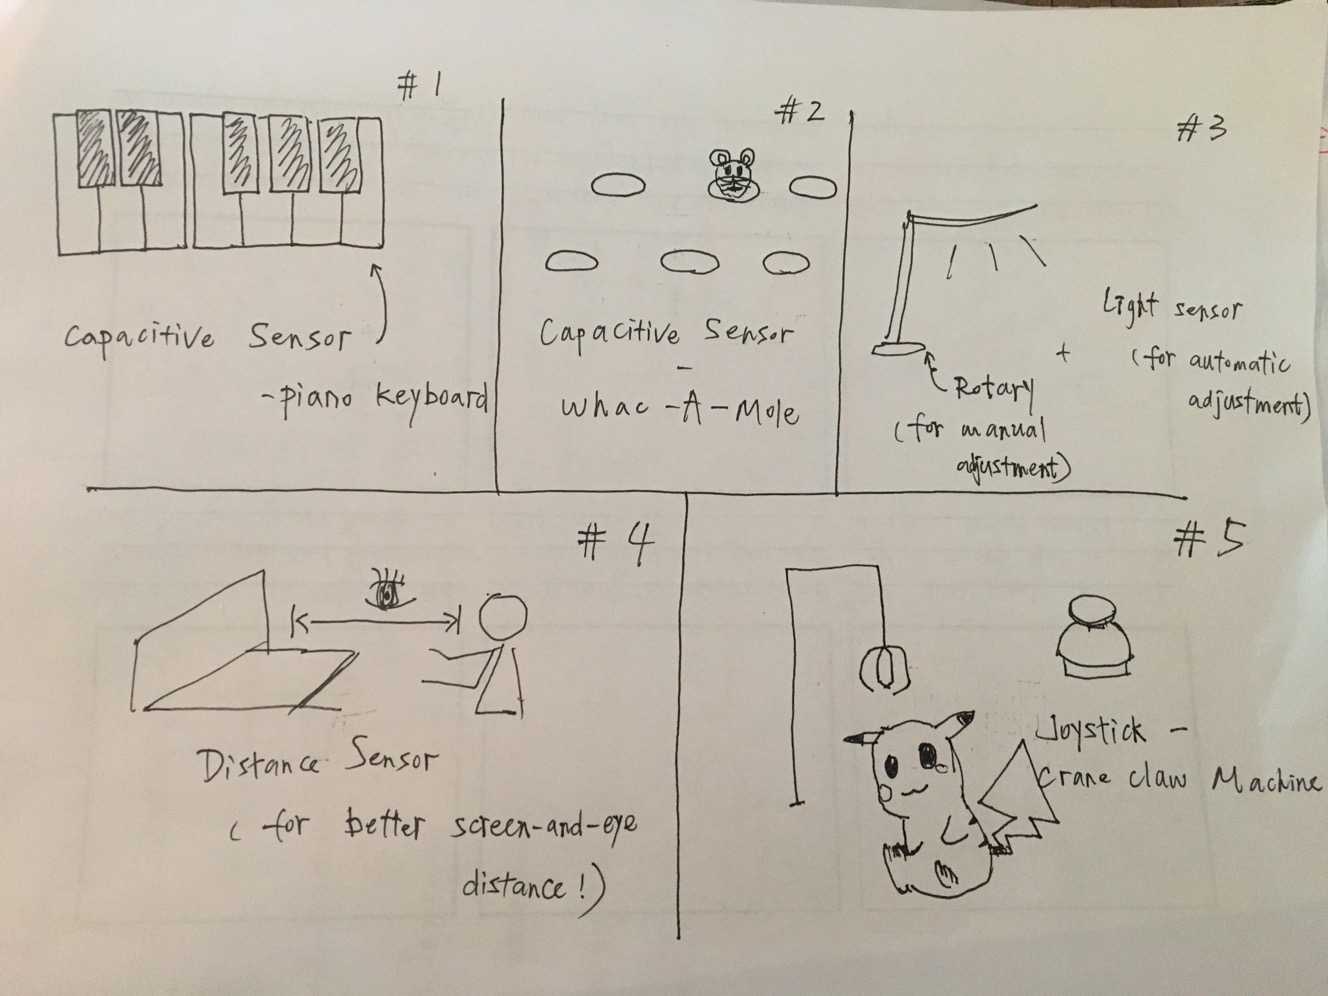 #1
Capacitive Sensor
-piano keyboard
#2
Capacitive Sensor
-
Whac-A-Mole
#3
Light sensor
(for automatic
adjustment)
+
Rotary
(for manual
adjustment)
#4
Distance Sensor
(for better screen-and-eye
distance!)
#5
Joystick -
Crane claw Machine